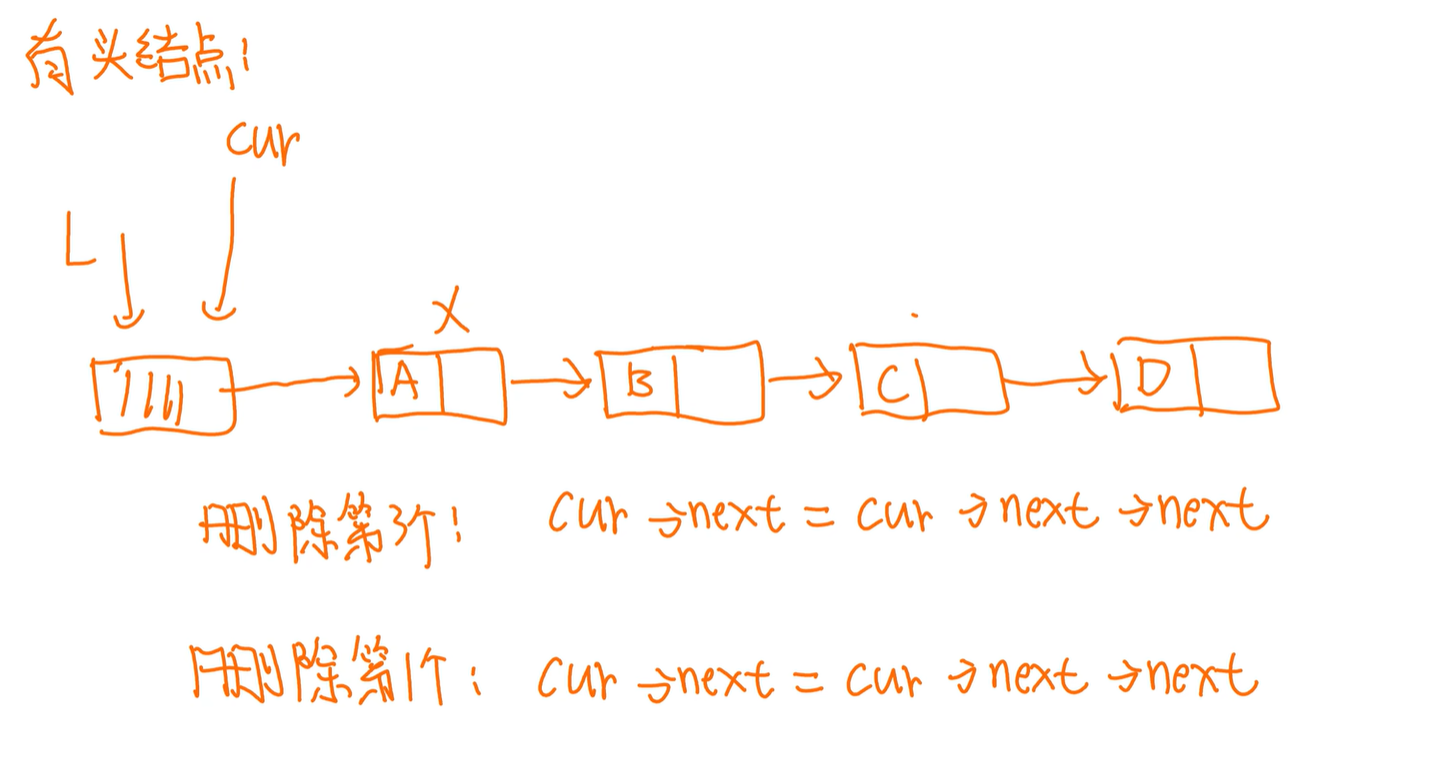 有头结点:
cur
L
X
A B C D
删除第3个: cur →next = cur →next →next
删除第1个: cur →next = cur →next →next